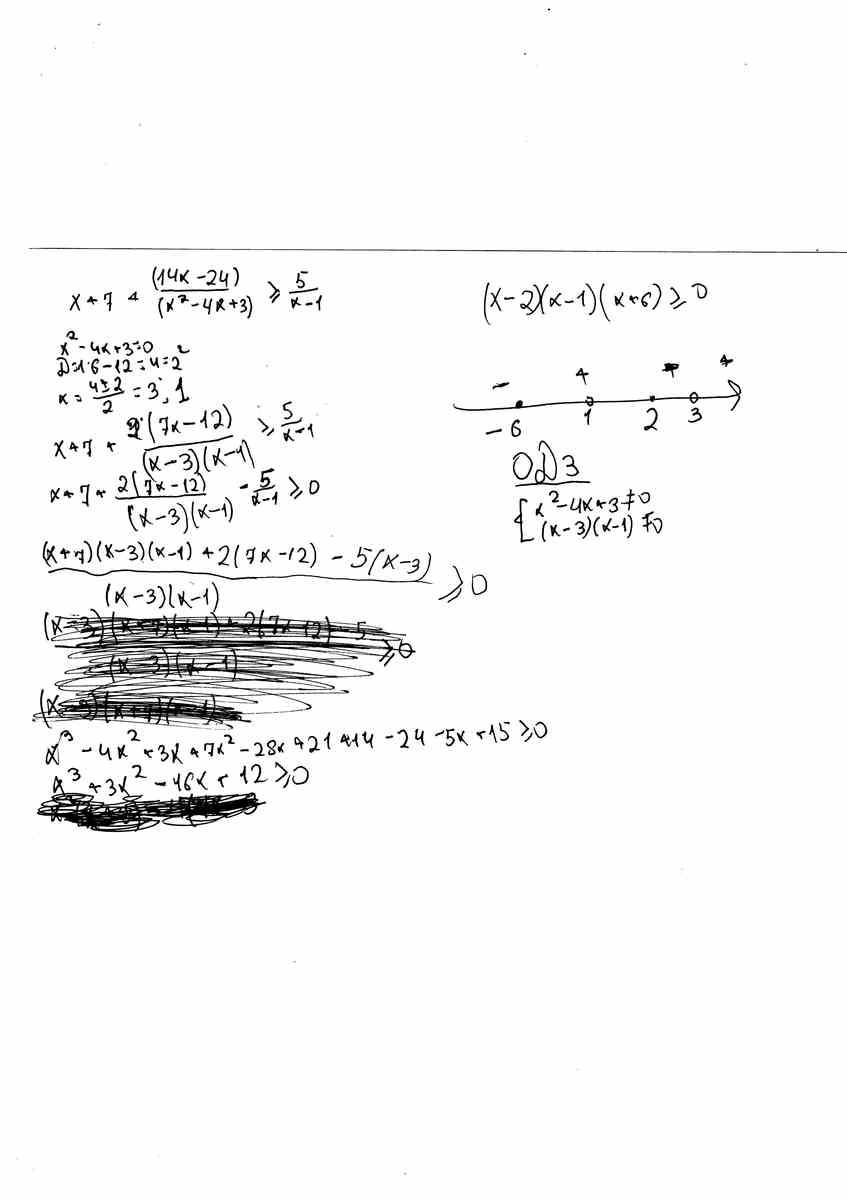 x+7 + (14x-24)/(x²-4x+3) ≥ 5/(x-1)
x²-4x+3=0
D=16-12=4=2²
x = (4±2)/2 = 3; 1
x+7 + 2(7x-12)/((x-3)(x-1)) ≥ 5/(x-1)
x+7+ 2(7x-12)/((x-3)(x-1)) - 5/(x-1) ≥ 0
((x+7)(x-3)(x-1) + 2(7x-12) - 5(x-3))/((x-3)(x-1)) ≥ 0
x³ - 4x² + 3x + 7x² - 28x + 21 + 14 - 24 - 5x + 15 ≥ 0
x³ + 3x² - 16x + 12 ≥ 0
(x-2)(x-1)(x+6) ≥ 0
- + + +
-6 1 2 3
ОДЗ
x²-4x+3≠0
(x-3)(x-1)≠0